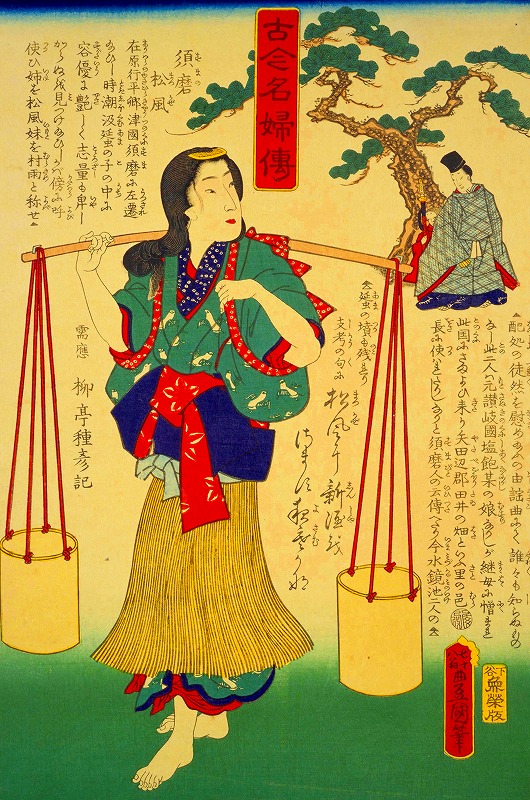 古今名婦傳
須磨
松風
在原行平郷津國須磨に左遷
あひし時潮汲蜑の子の中に
容優に艶しく志量も卑し
からぬを見つけあひしが傍に呼
使ひ姉を松風妹を村雨と称せ
配処の徒然を慰めあふの由謡曲に誰々も知るぬもの
此二人元讃岐國塩飽某の娘なりしが継母に憎まれ
此国にさまよひ来り矢田辺郡田井の畑といふ里の邑
長に使はれしなりと須磨人の云傳へたり今水鏡池二人の
蜑の墳も残れり
支考の句に
松風に新酒を
需應
柳亭種彦記
豊國筆
下谷
魚榮版